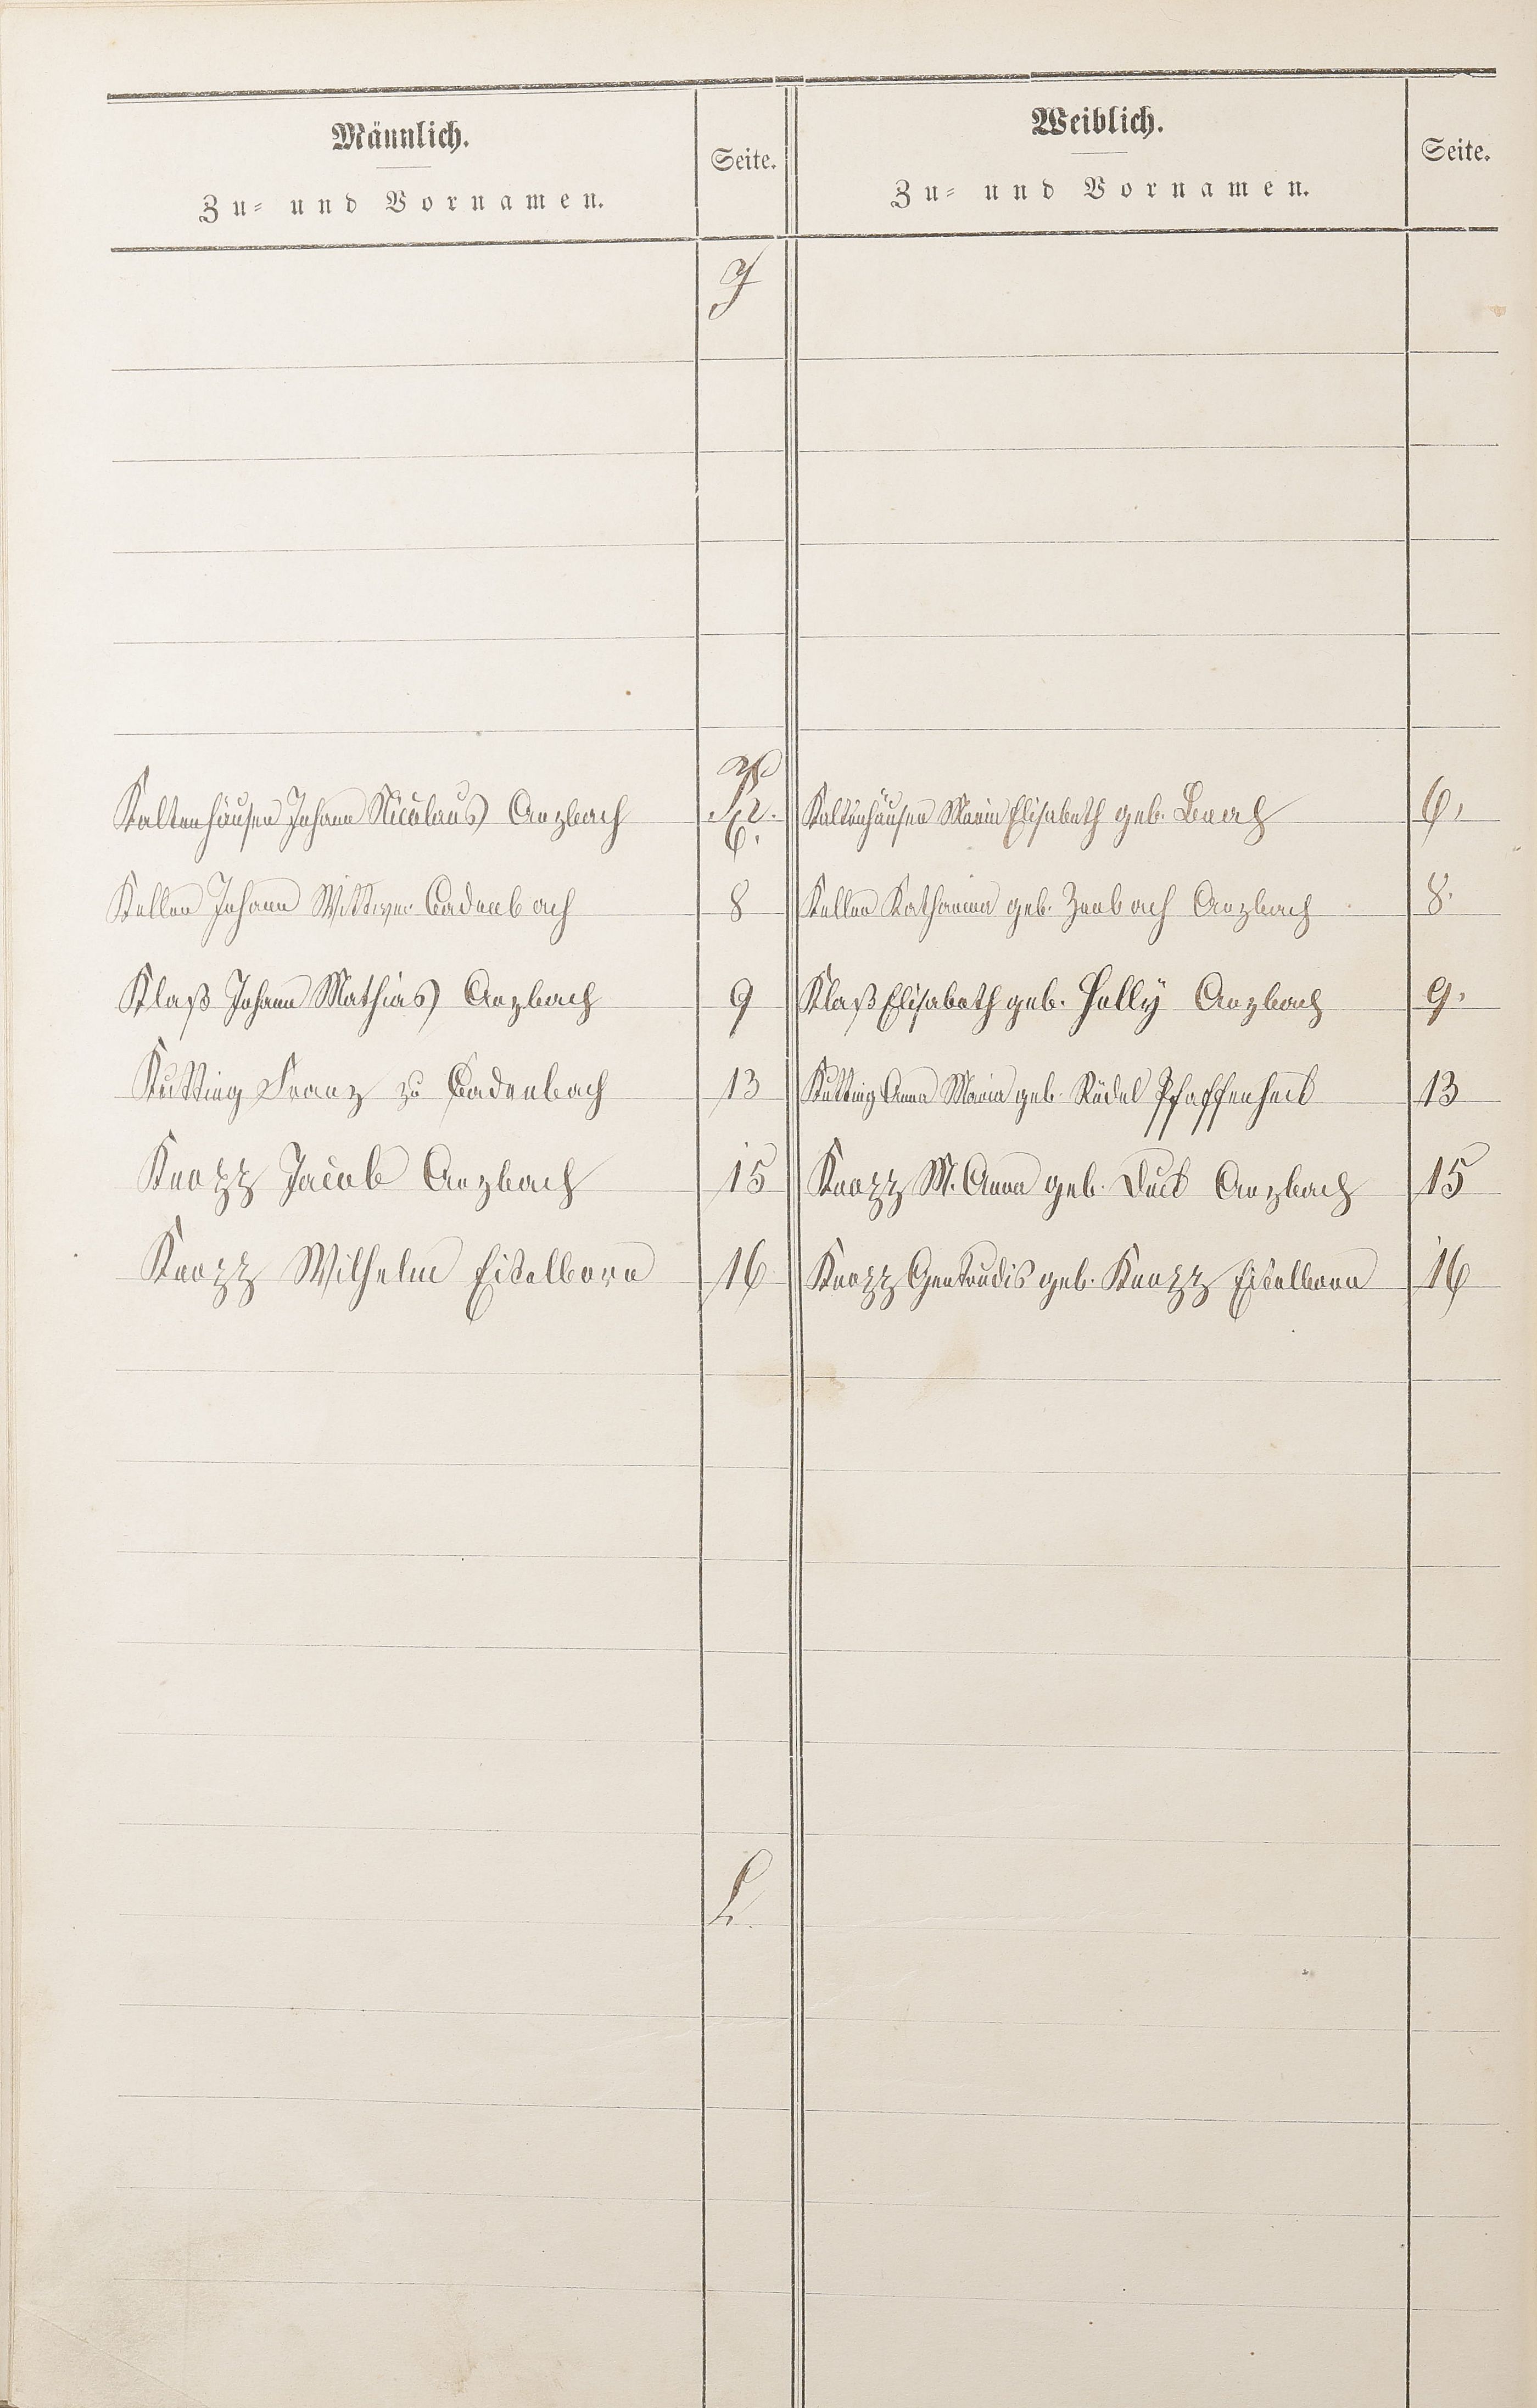 Männlich.
Zu- und Vornamen.
Seite.
Weiblich.
Zu- und Vornamen.
Seite.
J
K
Kaltenhäuser Johann Nicolaus Arzbach 6. Kaltenhäuser Maria Elisabeth geb. 6.
Keller Johann Wittwer Cadenbach 8 Keller Katharina geb. Arzbach 8.
Klaß Johann Mathias Arzbach 9 Klaß Elisabeth geb. Holly Arzbach 9.
Kutting Franz zu Cadenbach 13 Kutting Anna Maria geb. Rüdel 13
Knopp Jacob Arzbach 15 Knopp M. Anna geb. Arzbach 15
Knopp Wilhelm Eitelborn 16 Knopp Gertrudis geb. Knopp Eitelborn 16
L.